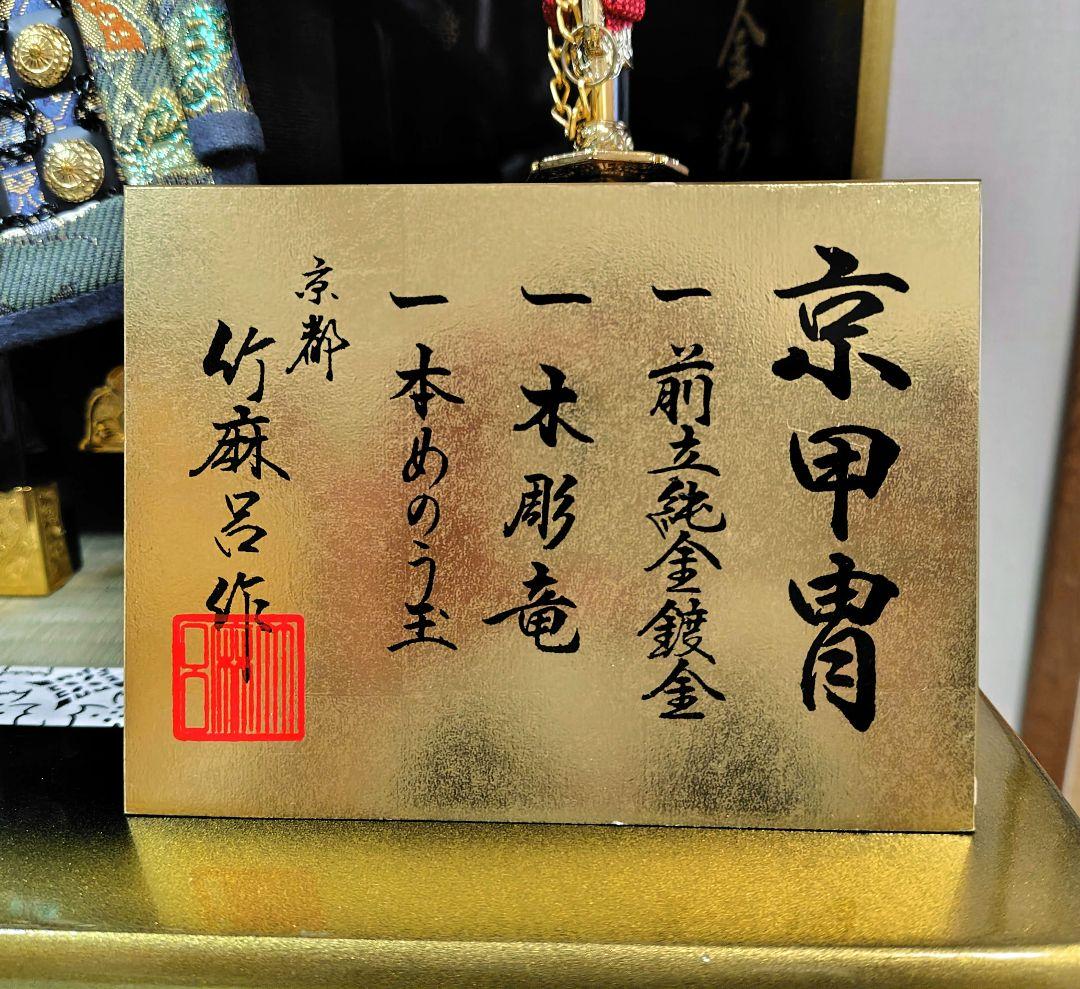 京甲冑
一 前立純金鍍金
一 木彫竜
一 本めのう玉
京都
竹麻呂作
金彩